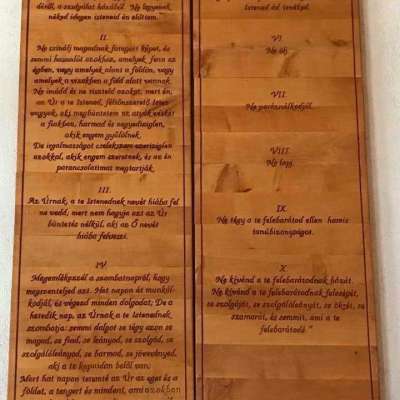 ből, a szolgálat házából. Ne legyenek
néked idegen isteneid én előttem.
II.
Ne csinálj magadnak faragott képet, és
semmi hasonlót azokhoz, amelyek fenn az
égben, vagy amelyek alant a földön, vagy
amelyek a vizekben a föld alatt vannak.
Ne imádd és ne tiszteld azokat; mert én,
az Úr a te Istened, féltőnszerető Isten
vagyok, aki megbüntetem az atyák vétkét
a fiakban, harmad és negyedíziglen,
akik engem gyűlölnek.
De irgalmasságot cselekszem ezeríziglen
azokkal, akik engem szeretnek, és az én
parancsolatimat megtartják.
III.
Az Úrnak, a te Istenednek nevét hiába fel
ne vedd, mert nem hagyja azt az Úr
büntetés nélkül, aki az Ő nevét
hiába felveszi.
IV.
Megemlékezzél a szombatnapról, hogy
megszenteljed azt. Hat napon át munkál-
kodjál, és végezd minden dolgodat; De a
hetedik nap, az Úrnak a te Istenednek,
szombatja: semmi dolgot se tégy azon se
magad, se fiad, se leányod, se szolgád, se
szolgálóleányod, se barmod, se jövevényed,
aki a te kapuidon belül van.
Mert hat napon teremté az Úr az eget és a
földet, a tengert és mindent, ami azokban
Istened ád tenéked.
VI.
Ne ölj.
VII.
Ne paráználkodjál.
VIII.
Ne lopj.
IX.
Ne tégy a te felebarátod ellen hamis
tanúbizonyságot.
X.
Ne kívánd a te felebarátodnak házát.
Ne kívánd a te felebarátodnak feleségét,
se szolgáját, se szolgálóleányát, se ökrét, se
szamarát, és semmit, ami a te
felebarátodé."